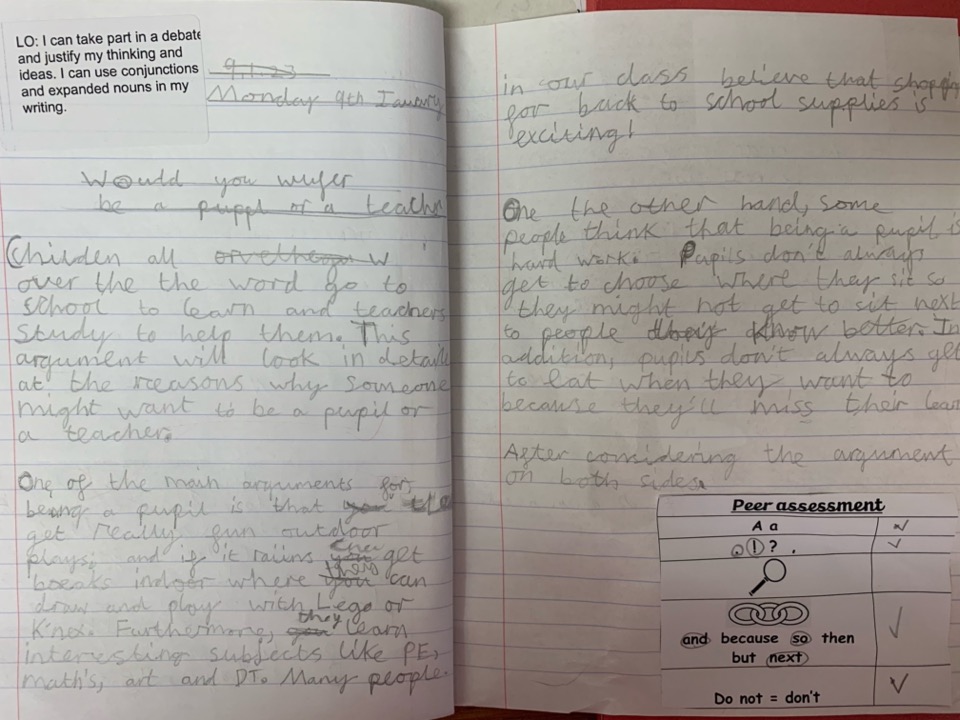 LO: I can take part in a debate
and justify my thinking and
ideas. I can use conjunctions
and expanded nouns in my
writing.
9.1.23
Monday 9th January
Would you wrefer
be a puppl or a teache
Children all over the w
over the the word go to
school to learn and teachers
study to help them. This
argument will look in detail
at the reasons why someone
might want to be a pupil or
a teacher.
One of the main arguments for
being a pupil is that you the
get really fun outdoor
plays; and if it raiins you they get
breaks indoor where you they can
draw and play with Lego or
K'nex. Furthermore, you they learn
interesting subjects like PE,
math's, art and DT. Many people
in our class believe that shoppin
for back to school supplies is
exciting!
One the other hand, some
people think that being a pupil is
hard work. Pupils don't always
get to choose where they sit so
they might not get to sit next
to people they know better. In
addition, pupils don't always get
to eat when they want to
because they'll miss their lear
After considering the argument
on both sides.
Peer assessment
A a
. ! ? ,
and because so then
but next
Do not = don't